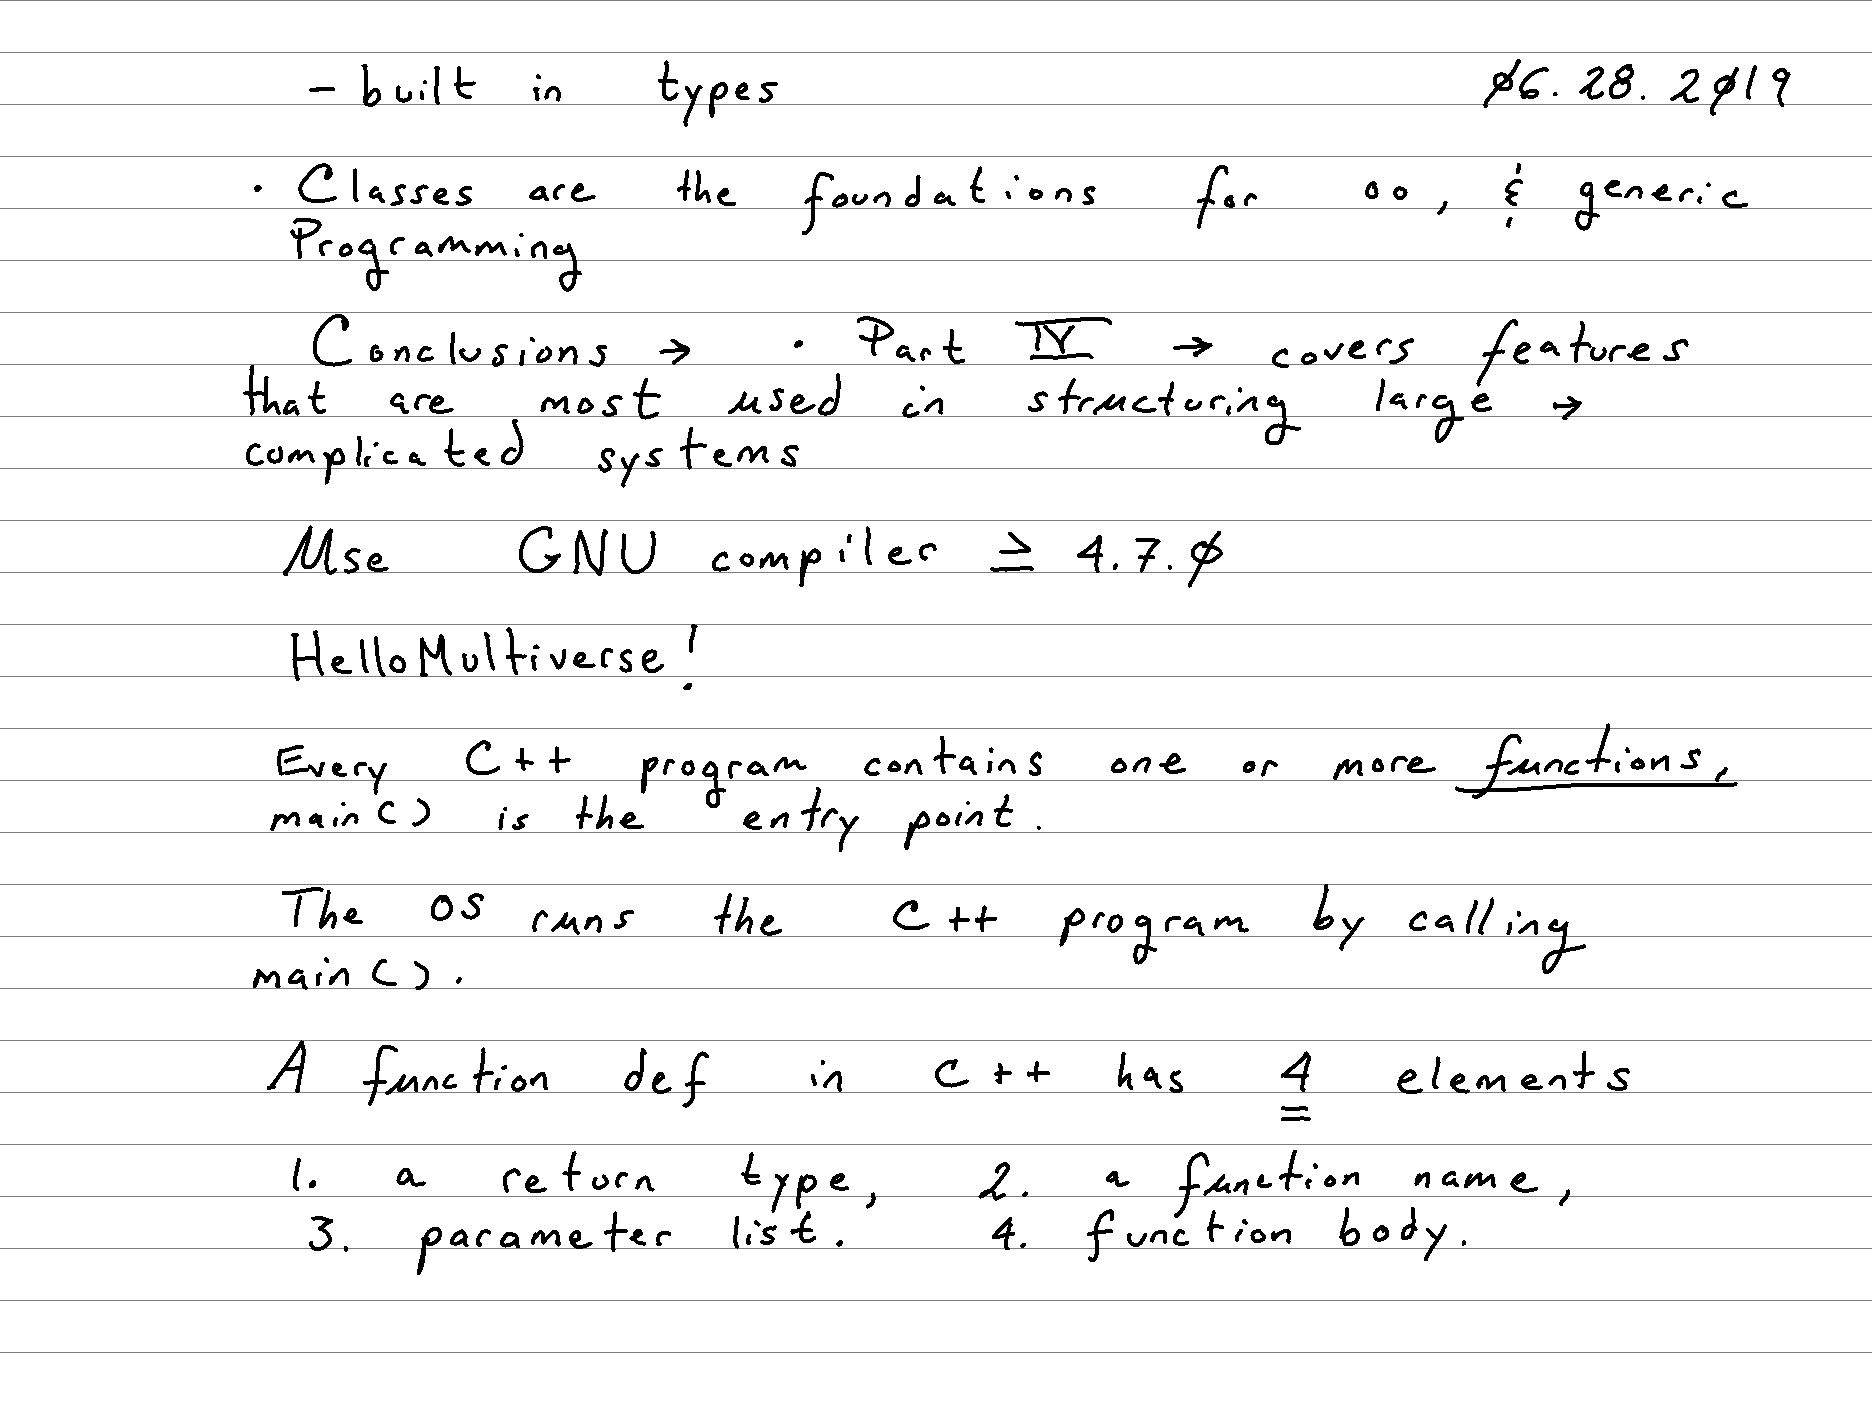 - built in types 06.28.2019
· Classes are the foundations for oo, & generic
Programming
Conclusions → · Part IV → covers features
that are most used in structuring large →
complicated systems
Use GNU compiler ≥ 4.7.0
HelloMultiverse!
Every C++ program contains one or more functions,
main() is the entry point.
The OS runs the C++ program by calling
main().
A function def in C++ has 4 elements
1. a return type, 2. a function name,
3. parameter list. 4. function body.